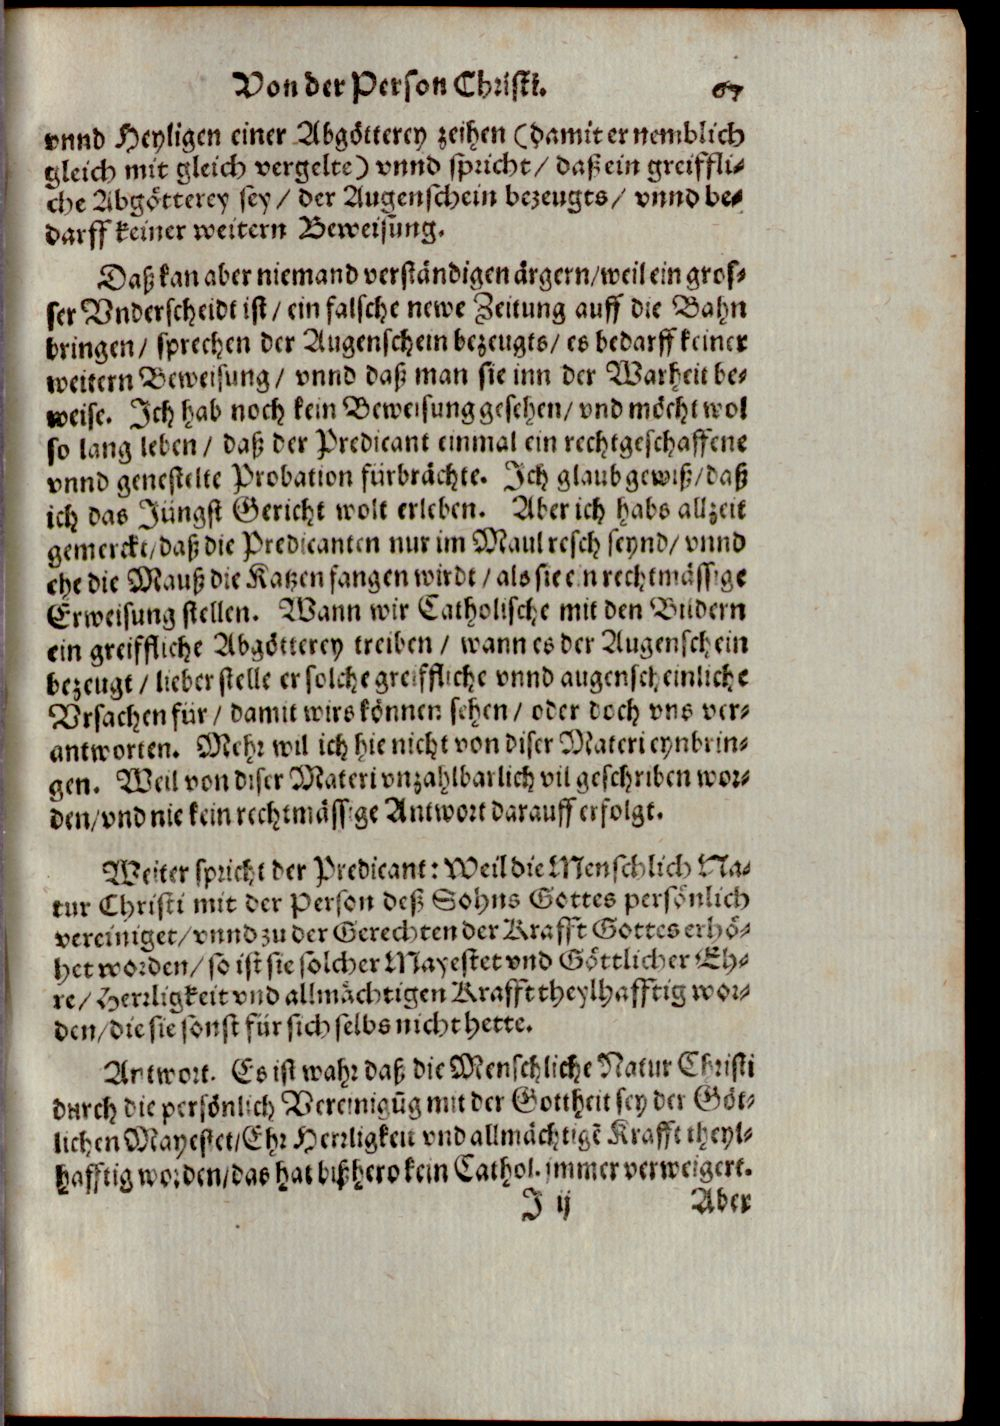 Von der Person Christi. 67
vnnd Heyligen einer Abgötterey zeihen (damit er nemblich
gleich mit gleich vergelte) vnnd spricht / daß ein greiffli-
che Abgötterey sey / der Augenschein bezeugts / vnnd be-
darff keiner weitern Beweisung.
Daß kan aber niemand verständigen ärgern / weil ein gros-
ser Vnderscheidt ist / ein falsche newe Zeitung auff die Bahn
bringen / sprechen der Augenschein bezeugts / es bedarff keiner
weitern Beweisung / vnnd daß man sie inn der Warheit be-
weise. Ich hab noch kein Beweisung gesehen / vnd möcht wol
so lang leben / daß der Predicant einmal ein rechtgeschaffene
vnnd genestelte Probation fürbrächte. Ich glaub gewiß / daß
ich das Jüngst Gericht wolt erleben. Aber ich habs allzeit
gemerckt / daß die Predicanten nur im Maul resch seynd / vnnd
ehe die Mauß die Katzen fangen wirdt / als sie ein rechtmässige
Erweisung stellen. Wann wir Catholische mit den Bildern
ein greiffliche Abgötterey treiben / wann es der Augenschein
bezeugt / lieber stelle er solche greiffliche vnnd augenscheinliche
Vrsachen für / damit wirs können sehen / oder doch vns ver-
antworten. Mehr wil ich hie nicht von diser Materi eynbrin-
gen. Weil von diser Materi vnzahlbarlich vil geschriben wor-
den / vnd nie kein rechtmässige Antwort darauff erfolgt.
Weiter spricht der Predicant: Weil die Menschlich Na-
tur Christi mit der Person deß Sohns Gottes persönlich
vereiniget / vnnd zu der Gerechten der Krafft Gottes erhö-
het worden / so ist sie solcher Mayestet vnd Göttlicher Eh-
re / Herrligkeit vnd allmächtigen Krafft theylhafftig wor-
den / die sie sonst für sich selbs nicht hette.
Antwort. Es ist wahr daß die Menschliche Natur Christi
durch die persönlich Vereinigūg mit der Gottheit sey der Göt-
lichen Mayestet / Ehr Herrligkeit vnd allmächtigē Krafft theyl-
hafftig worden / das hat bißhero kein Cathol. immer verweigert.
J ij Aber